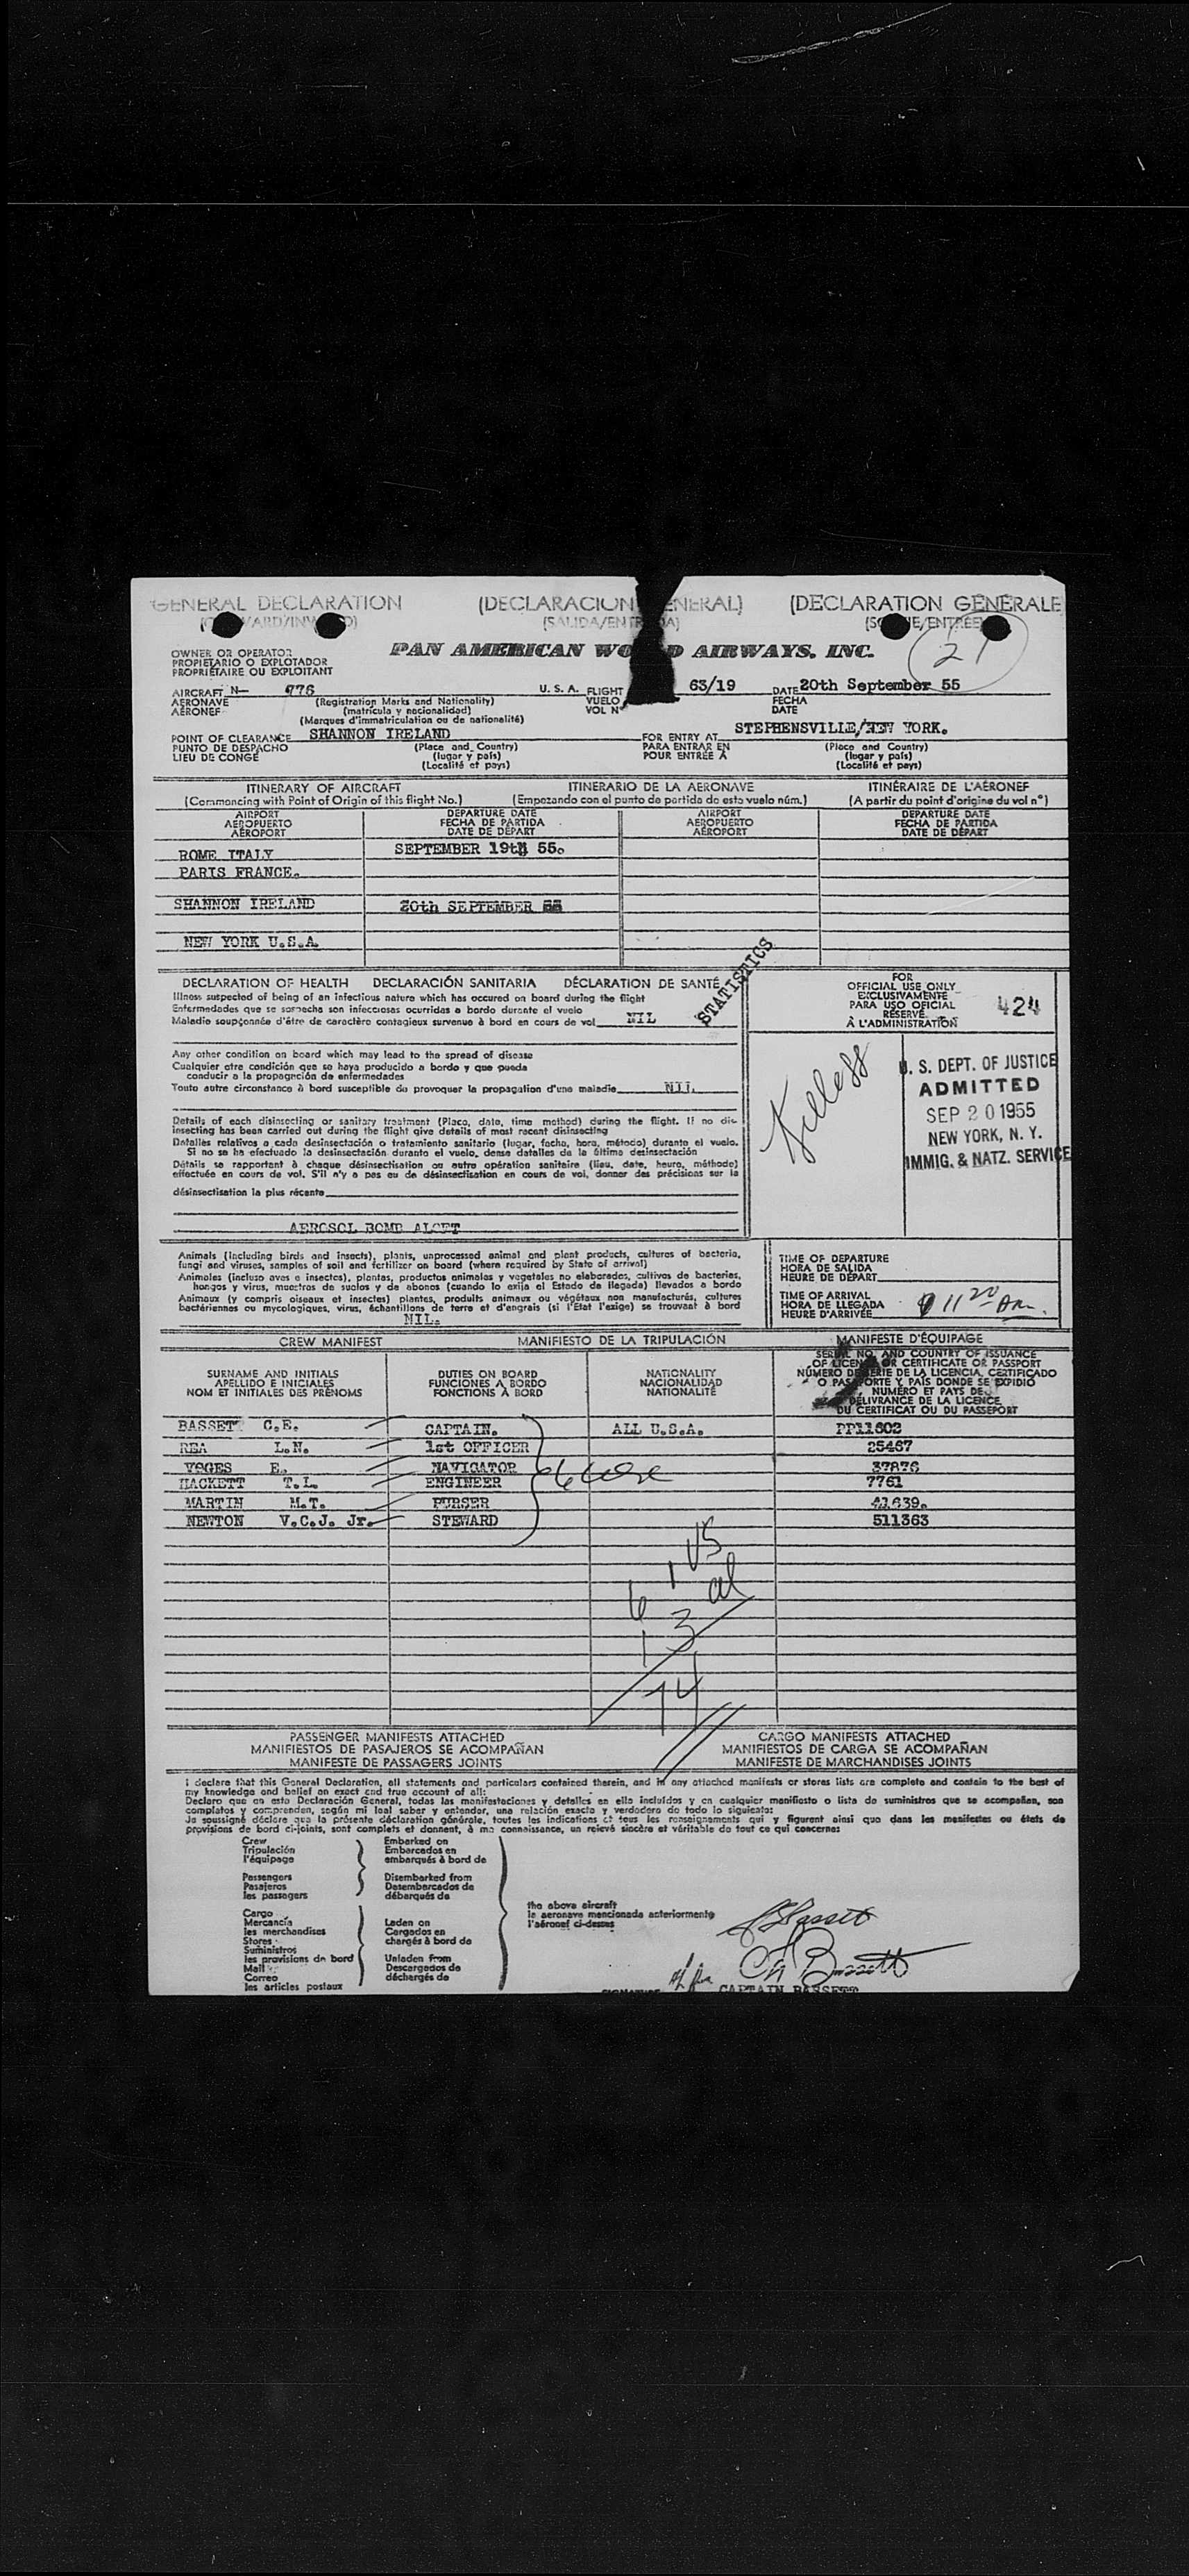 GENERAL DECLARATION (DECLARACION GENERAL) (DECLARATION GÉNÉRALE
(SALIDA/ENTRADA)
OWNER OR OPERATOR
PROPIETARIO O EXPLOTADOR
PROPRIÉTAIRE OU EXPLOITANT
PAN AMERICAN WORLD AIRWAYS, INC.
21
AIRCRAFT N- 776 U. S. A. FLIGHT 63/19 DATE 20th September 55
AÉRONAVE (Registration Marks and Nationality) VUELO FECHA
AÉRONEF (matrícula y nacionalidad) VOL N° DATE
(Marques d'immatriculation ou de nationalité)
POINT OF CLEARANCE SHANNON IRELAND FOR ENTRY AT STEPHENSVILLE/NEW YORK.
PUNTO DE DESPACHO (Place and Country) PARA ENTRAR EN (Place and Country)
LIEU DE CONGÉ (lugar y país) POUR ENTRÉE À (lugar y país)
(Localité et pays) (Localité et pays)
ITINERARY OF AIRCRAFT ITINERARIO DE LA AERONAVE ITINÉRAIRE DE L'AÉRONEF
(Commencing with Point of Origin of this flight No.) (Empezando con el punto de partida de este vuelo núm.) (A partir du point d'origine du vol n°)
AIRPORT DEPARTURE DATE AIRPORT DEPARTURE DATE
AEROPUERTO FECHA DE PARTIDA AEROPUERTO FECHA DE PARTIDA
AÉROPORT DATE DE DÉPART AÉROPORT DATE DE DÉPART
ROME ITALY SEPTEMBER 19th 55.
PARIS FRANCE.
SHANNON IRELAND 20th SEPTEMBER 55
NEW YORK U.S.A.
STATISTICS
DECLARATION OF HEALTH DECLARACIÓN SANITARIA DÉCLARATION DE SANTÉ
Illness suspected of being of an infectious nature which has occured on board during the flight
Enfermedades que se sospecha son infecciosas ocurridas a bordo durante el vuelo
Maladie soupçonnée d'être de caractère contagieux survenue à bord en cours de vol NIL
FOR
OFFICIAL USE ONLY
EXCLUSIVAMENTE
PARA USO OFICIAL
RÉSERVÉ
À L'ADMINISTRATION
424
Any other condition on board which may lead to the spread of disease
Cualquier otra condición que se haya producido a bordo y que pueda
conducir a la propagación de enfermedades
Toute autre circonstance à bord susceptible de provoquer la propagation d'une maladie NIL
U. S. DEPT. OF JUSTICE
ADMITTED
SEP 20 1955
NEW YORK, N. Y.
IMMIG. & NATZ. SERVICE
Details of each disinsecting or sanitary treatment (Place, date, time method) during the flight. If no dis-
insecting has been carried out during the flight give details of most recent disinsecting
Detalles relativos a cada desinsectación o tratamiento sanitario (lugar, fecha, hora, método) durante el vuelo.
Si no se ha efectuado la desinsectación durante el vuelo, dense detalles de la última desinsectación
Détails se rapportant à chaque désinsectisation ou autre opération sanitaire (lieu, date, heure, méthode)
effectuée en cours de vol. S'il n'y a pas eu de désinsectisation en cours de vol, donner des précisions sur la
désinsectisation la plus récente
AEROSOL BOMB
Animals (including birds and insects), plants, unprocessed animal and plant products, cultures of bacteria,
fungi and viruses, samples of soil and fertilizer on board (where required by State of arrival)
Animales (incluso aves e insectos), plantas, productos animales y vegetales no elaborados, cultivos de bacterias,
hongos y virus, muestras de suelos y de abonos (cuando lo exija el Estado de llegada) llevados a bordo
Animaux (y compris oiseaux et insectes) plantes, produits animaux ou végétaux non manufacturés, cultures
bactériennes ou mycologiques, virus, échantillons de terre et d'engrais (si l'État l'exige) se trouvant à bord
NIL.
TIME OF DEPARTURE
HORA DE SALIDA
HEURE DE DÉPART
TIME OF ARRIVAL
HORA DE LLEGADA
HEURE D'ARRIVÉE 11 20 Am.
CREW MANIFEST MANIFIESTO DE LA TRIPULACIÓN MANIFESTE D'ÉQUIPAGE
SURNAME AND INITIALS DUTIES ON BOARD NATIONALITY
APELLIDO E INICIALES FUNCIONES A BORDO NACIONALIDAD
NOM ET INITIALES DES PRÉNOMS FONCTIONS À BORD NATIONALITÉ
SERIAL NO. AND COUNTRY OF ISSUANCE
OF LICENCE OR CERTIFICATE OR PASSPORT
NÚMERO DE SERIE DE LA LICENCIA, CERTIFICADO
O PASAPORTE Y PAÍS DONDE SE EXPIDIÓ
NUMÉRO ET PAYS DE
DÉLIVRANCE DE LA LICENCE
DU CERTIFICAT OU DU PASSEPORT
BASSET C.E. CAPTAIN. ALL U.S.A. PP11602
REA L.N. 1st OFFICER 25467
VOGES E. NAVIGATOR 37876
HACKETT T.L. ENGINEER 7761
MARTIN M.T. PURSER 41639.
NEWTON V.C.J. Jr. STEWARD 511363
US
6 1 al
1 3
74
PASSENGER MANIFESTS ATTACHED CARGO MANIFESTS ATTACHED
MANIFIESTOS DE PASAJEROS SE ACOMPAÑAN MANIFIESTOS DE CARGA SE ACOMPAÑAN
MANIFESTE DE PASSAGERS JOINTS MANIFESTE DE MARCHANDISES JOINTS
I declare that this General Declaration, all statements and particulars contained therein, and in any attached manifests or stores lists are complete and contain to the best of
my knowledge and belief an exact and true account of all:
Declaro que en esta Declaración General, todas las manifestaciones y detalles en ella incluídos y en cualquier manifiesto o lista de suministros que se acompañan, son
completos y comprenden, según mi leal saber y entender, una relación exacta y verdadera de todo lo siguiente:
Je soussigné déclare que la présente déclaration générale, toutes les indications et tous les renseignements qui y figurent ainsi que dans les manifestes ou états de
provisions de bord ci-joints, sont complets et donnent, à ma connaissance, un relevé sincère et véritable de tout ce qui concerne:
Crew Embarked on
Tripulación Embarcados en
l'équipage embarqués à bord de
Passengers Disembarked from
Pasajeros Desembarcados de
les passagers débarqués de
the above aircraft
la aeronave mencionada anteriormente
l'aéronef ci-dessus
Cargo
Mercancía Laden on
les merchandises Cargados en
Stores chargés à bord de
Suministros
les provisions de bord Unladen from
Mail Descargados de
Correo déchargés de
les articles postaux
C E Bassett
SIGNATURE CAPTAIN BASSETT